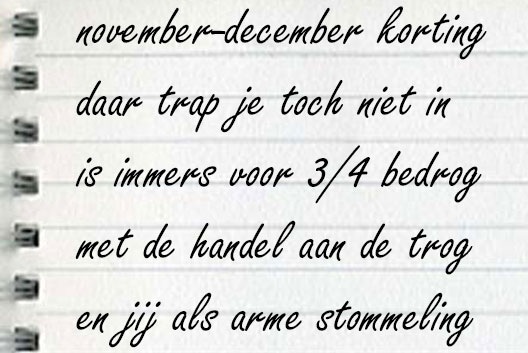 november-december korting
daar trap je toch niet in
is immers voor 3/4 bedrog
met de handel aan de trog
en jij als arme stommeling